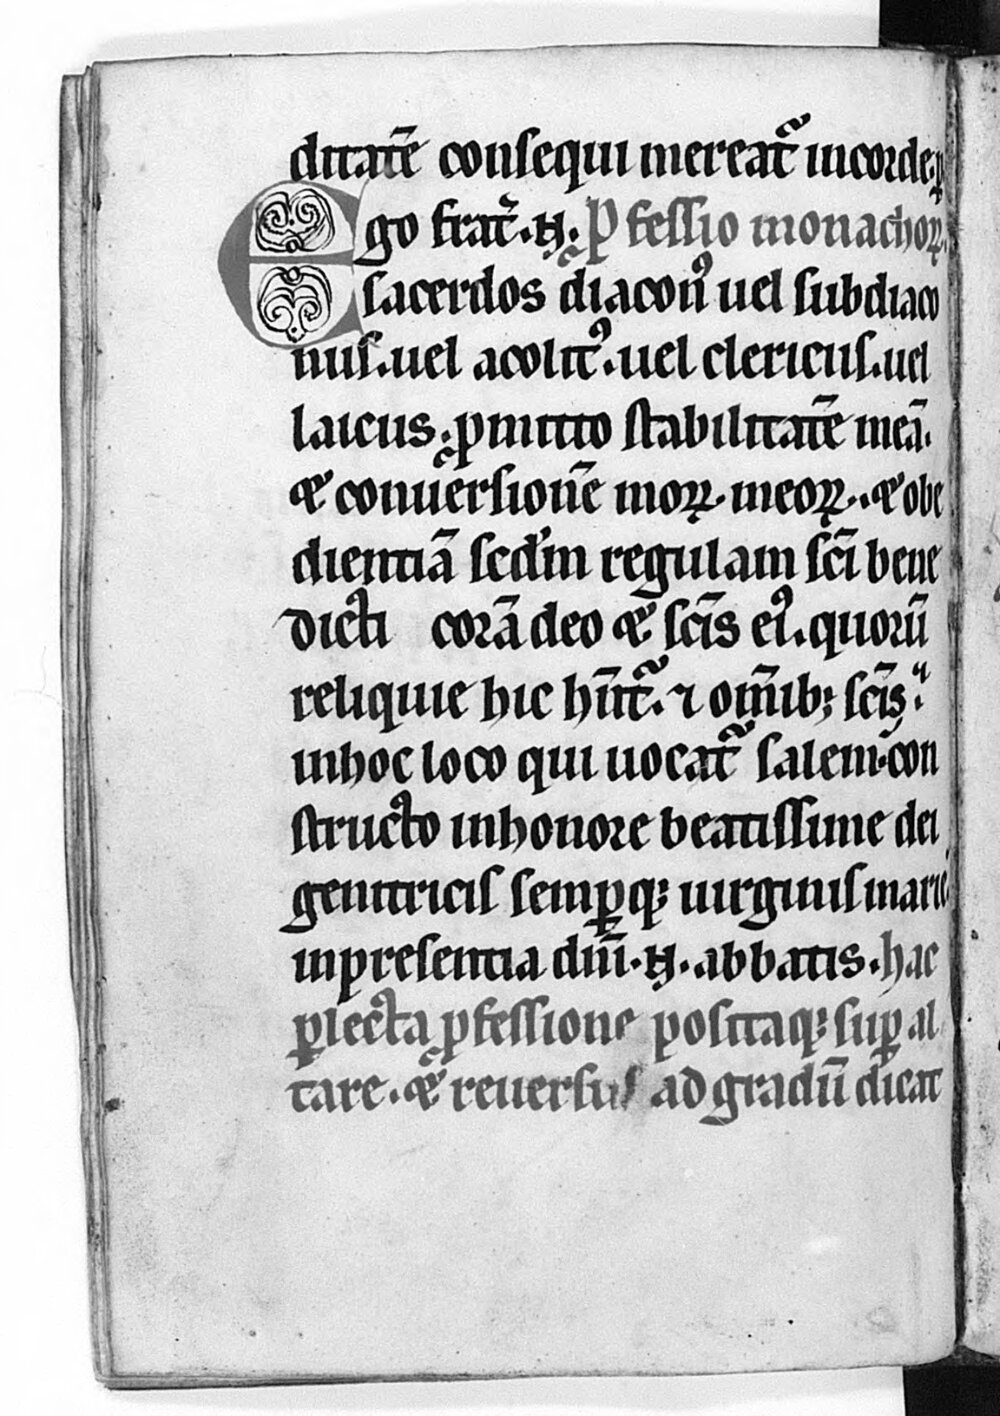 ditatē consequi mereat᷑ in corde. p̲
Ego frat̃. N. P̱fessio monachoꝝ.
sacerdos diacon᷒ uel subdiaco
nus. uel acolit᷒. uel clericus. uel
laicus. ꝓmitto stabilitatē meā.
& conuersionē moꝝ. meoꝝ. & obe
dientiā scd̄m regulam sc̄i bene
dicti corā deo & sc̄is ei᷒. quorū
reliquie hic hn̄t᷑. ⁊ om̄ib; sc̄is.
in hoc loco qui uocat᷑ salem. con
structo in honore beatissime dei
genitricis semꝑq; uirginis marie
in presentia dn̄i. N. abbatis. hac
ꝑlecta ꝓfessione positaq; suꝑ al
tare. & reuersus ad gradū dicat